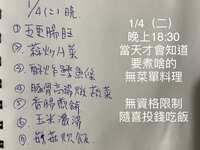 1/4 (二) 晚
① 五更腸旺
② 蒜炒A菜
③ 酥炸鱈魚條
④ 豚骨高湯燉蔬菜
⑤ 香腸煎
⑥ 玉米濃湯
⑦ 炊飯
1/4（二）
晚上18:30
當天才會知道
要煮啥的
無菜單料理
無資格限制
隨喜投錢吃飯